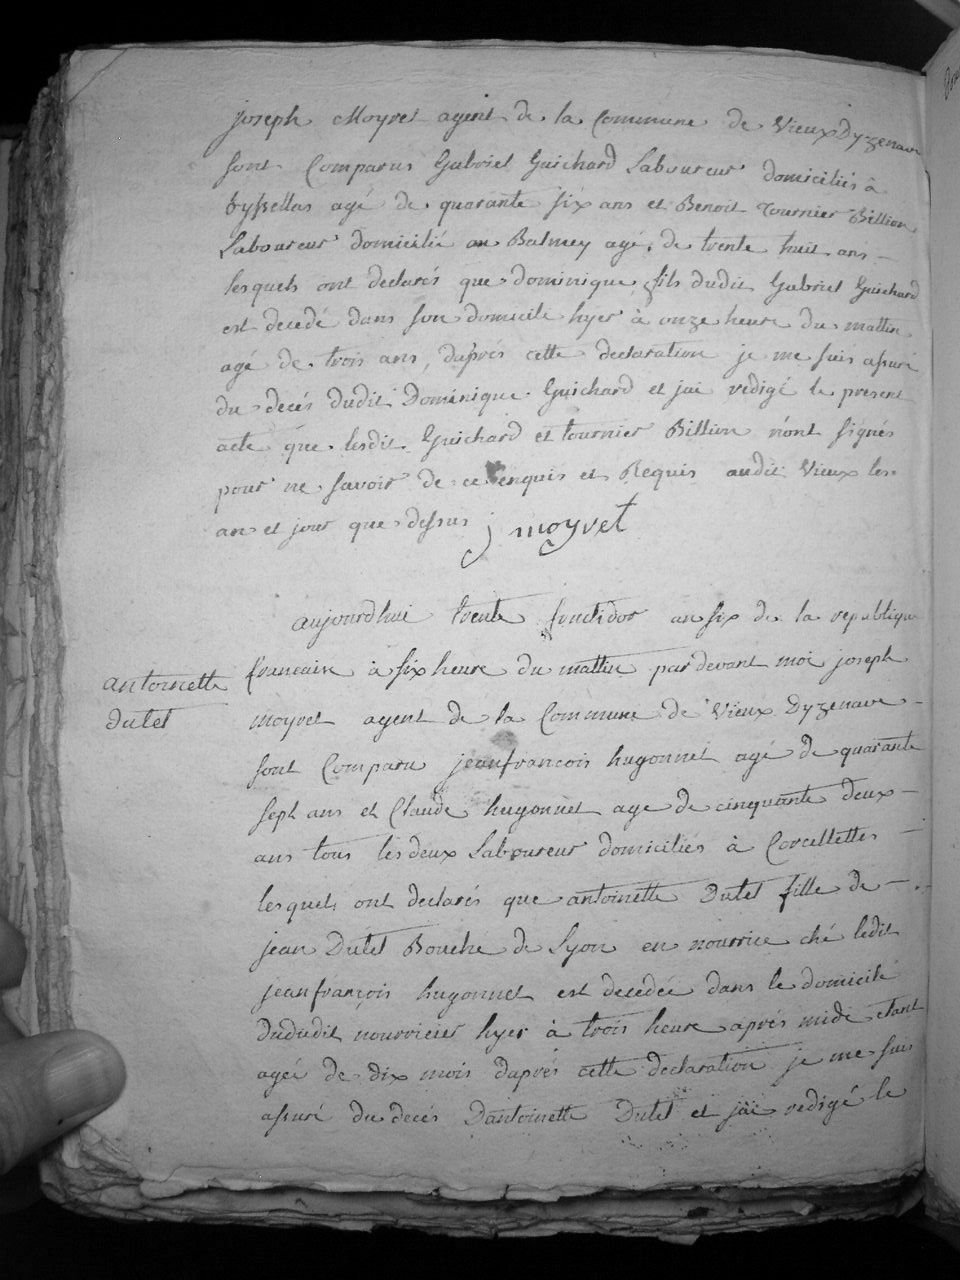 joseph Moyret agent de la Commune de Vieux Dyzenave
sont Comparus Gabriel Guichard Laboureur domiciliés à
agé de quarante six ans et Benoit tournier Billion
Laboureur domicilié au Balmey agé de trente huit ans
lesquels ont declarés que dominique fils dudit Gabriel Guichard
est decedé dans son domicile hyer à onze heure du mattin
agé de trois ans, daprés cette declaration je me suis assuré
du decés dudit Dominique Guichard et jai redigé le present
acte que lesdit Guichard et tournier Billion n'ont signés
pour ne savoir de ce enquis et Requis audit Vieux les
an et jour que dessus j moyret
aujourdhui trente fructidor an six de la republique
antoinette
dutel
francaise à six heure du mattin pardevant moi joseph
moyret agent de la Commune de Vieux Dyzenave
sont Comparu jeanfrancois hugonnet agé de quarante
sept ans et Claude hugonnet age de cinquante deux
ans tous les deux Laboureur domiciliés à Corcellettes
lesquels ont declarés que antoinette Dutel fille de
jean Dutel Bouche de Lyon en nourrice ché ledit
jeanfrançois hugonnet est decedée dans le domicile
dududit nourricier hyer à trois heure aprés midi etant
agée de dix mois daprés cette declaration je me suis
assuré du decés Dantoinette Dutel et jai redigé le